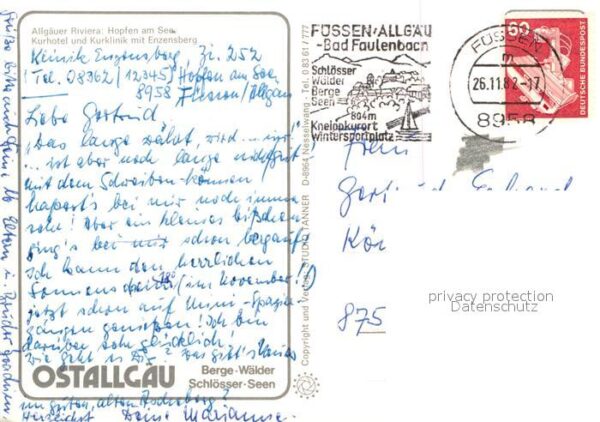 Allgäuer Riviera: Hopfen am See
Kurhotel und Kurklinik mit Enzensberg
Klinik Enzensberg, Zi. 252
Tel. 08362/12345/Hopfen am See
8958 Füssen/Allgäu
Liebe Gertrud,
"Was lange währt, wird
ist aber noch lange nicht gut!
mit dem Schreiben-können
hapert's bei mir noch immer
sehr! Aber ein kleines bißchen
ging's bei mir schon bergauf
Ich kann den herrlichen
Sonnenschein (im November!)
jetzt schon auf Mini-Spazier-
gängen genießen! Ich bin
darüber sehr glücklich.
Wie geht es Dir? Was gibt's Neues
OSTALLGÄU
Berge·Wälder
Schlösser·Seen
im guten, alten
Herzlichst Deine Marianne
Eltern u. Bruder
Copyright und Verlag STUDIO TANNER D-8964 Nesselwang · Tel. 0 83 61 / 777
FÜSSEN/ALLGÄU
-Bad Faulenbach
Schlösser
Wälder
Berge
Seen
804m
Kneippkurort
Wintersportplatz
FÜSSEN
26.11.82-17
8958
60
DEUTSCHE BUNDESPOST
Gertrud
875
privacy protection
Datenschutz